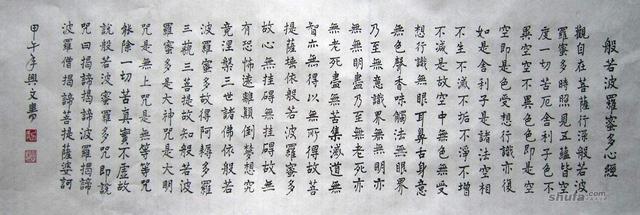 般若波羅蜜多心經
觀自在菩薩行深般若波
羅蜜多時照見五蘊皆空
度一切苦厄舍利子色不
異空空不異色色即是空
空即是色受想行識亦復
如是舍利子是諸法空相
不生不滅不垢不淨不增
不減是故空中無色無受
想行識無眼耳鼻舌身意
無色聲香味觸法無眼界
乃至無意識界無無明亦
無無明盡乃至無老死亦
無老死盡無苦集滅道無
智亦無得以無所得故菩
提薩埵依般若波羅蜜多
故心無挂礙無挂礙故無
有恐怖遠離顛倒夢想究
竟涅槃三世諸佛依般若
波羅蜜多故得阿耨多羅
三藐三菩提故知般若波
羅蜜多是大神咒是大明
咒是無上咒是無等等咒
能除一切苦真實不虛故
說般若波羅蜜多咒即說
咒曰揭諦揭諦波羅揭諦
波羅僧揭諦菩提薩婆訶
甲午年
shufa.com